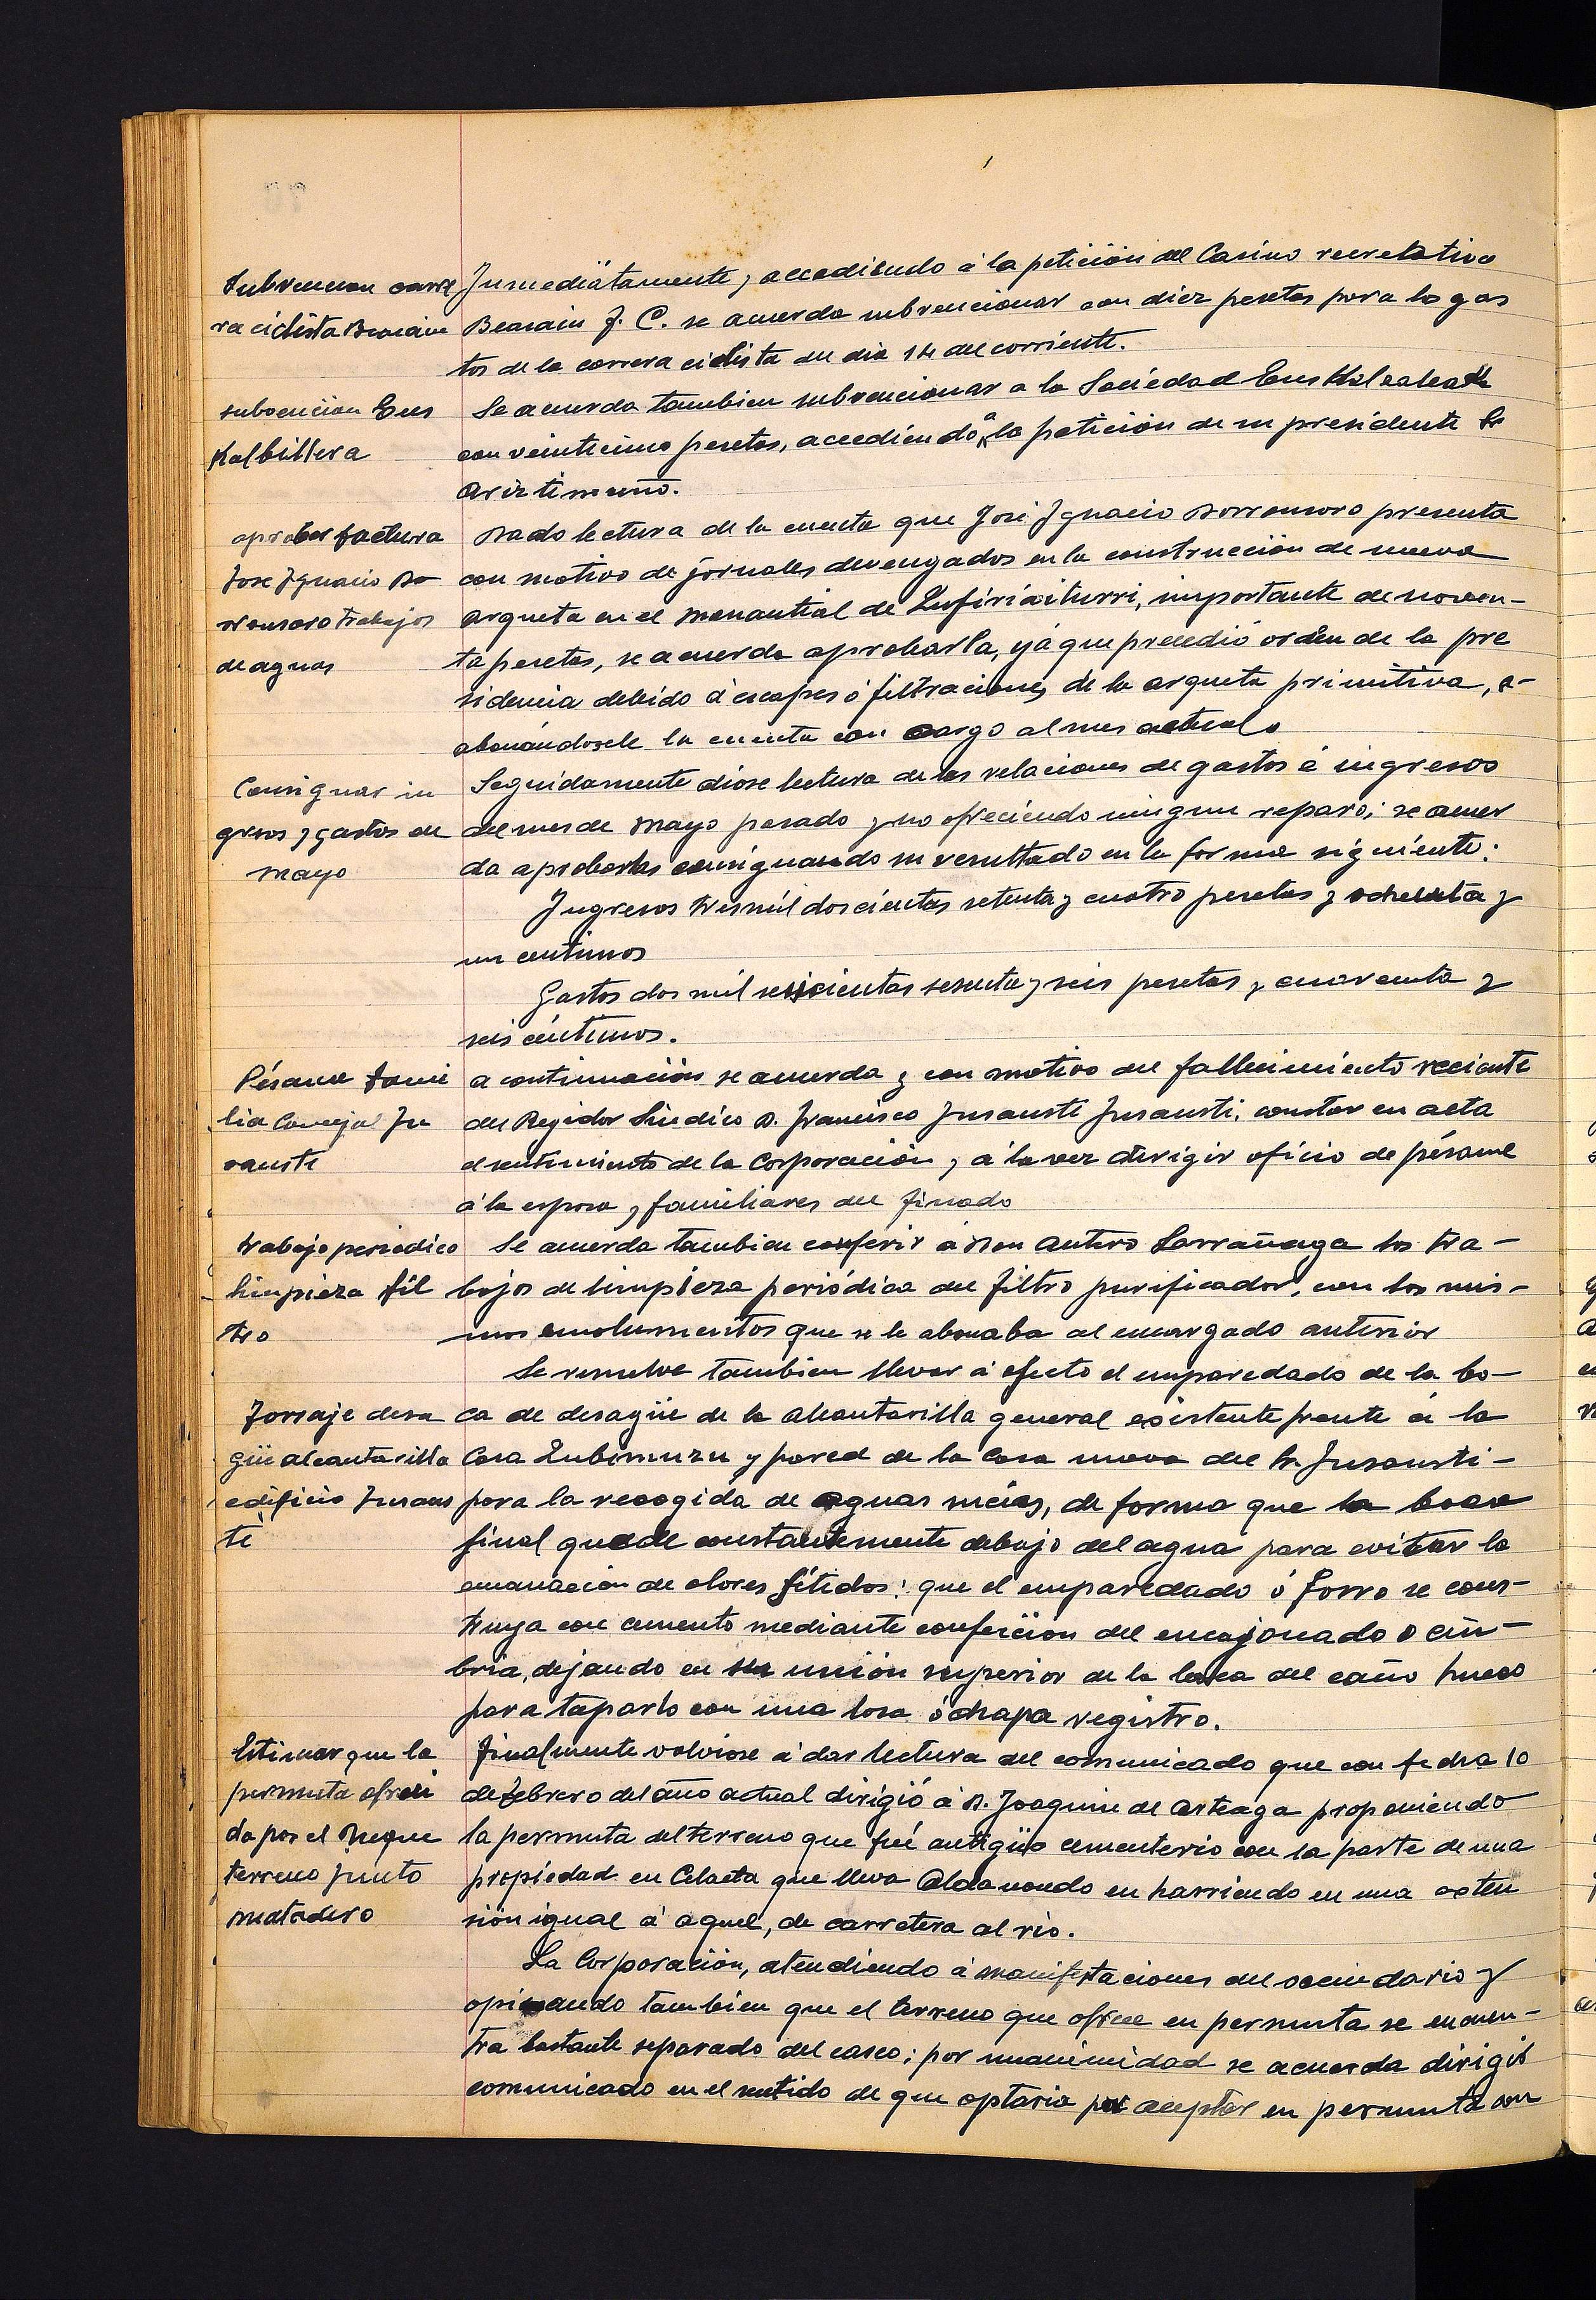 Subvencion carre
ra ciclista Beasain
Inmediatamente, accediendo á la petición del Casino recreativo
Beasain F. C. se acuerda subvencionar con diez pesetas para los gas
tos de la carrera ciclista del dia 14 del corriente.
subvencion Eus
Kalbillera
Se acuerda tambien subvencionar a la Sociedad
con veinticinco pesetas, accediendo á la petición de su presidente Sr
Ariztimuño.
aprobar factura
Jose Ignacio Do
rronsoro trabajos
de aguas
Dada lectura de la cuenta que José Ignacio Dorronsoro presenta
con motivo de jornales devengados en la construcción de nueva
arqueta en el manantial de Zufiriaiturri, importante de noven-
ta pesetas, se acuerda aprobarla, yá que precedió orden de la pre
sidencia debido á escapes ó filtraciones de la arqueta primitiva, a-
abonándosele la cuenta con cargo al mes actual.
Consignar in
gresos y gastos en
mayo
Seguidamente dióse lectura de las relaciones de gastos é ingresos
del mes de Mayo pasado y no ofreciendo ningun reparo; se acuer
da aprobarlas consignando su resultado en la forma siguiente:
Ingresos tres mil doscientas setenta y cuatro pesetas y ochenta y
un centimos
Gastos dos mil seiscientas sesenta y seis pesetas y cuarenta y
seis céntimos.
Pésame fami
lia Concejal In
sausti
a continuación se acuerda y con motivo del fallecimiento reciente
del Regidor Sindico D. Francisco Insausti Insausti, constar en acta
el sentimiento de la Corporación, y á la vez dirigir oficio de pésame
á la esposa y familiares del finado
trabajo periodico
limpieza fil
tro
Se acuerda tambien conferir á Don Antero Larrañaga los tra-
bajos de limpieza periódica del filtro purificador, con los mis-
mos emolumentos que se le abonaba al encargado anterior
Se resuelve tambien llevar á efecto el emparedado de la bo-
Forraje desa
güe alcantarilla
edificio Insaus
ti
ca de desagüe de la alcantarilla general existente frente á la
Casa Zubimuzu y pared de la Casa nueva del Sr. Insausti-
para la recogida de aguas sucias, de forma que la boca
final quede constantemente debajo del agua para evitar la
emanación de olores fétidos: que el emparedado ó forro se cons-
truya con cemento mediante confeccion del encajonado o cim-
bria, dejando en su unión superior de la boca del caño hueco
para taparlo con una losa ó chapa registro.
Estimar que la
permuta ofreci
da por el Duque
terreno junto
matadero
Finalmente volvióse á dar lectura del comunicado que con fecha 10
de Febrero del año actual dirigió á D. Joaquin de Arteaga proponiendo
la permuta del terreno que fué antigüo cementerio con la parte de una
propiedad en Celaeta que lleva Aldanondo en harriendo en una exten
sión igual á aquel, de carretera al rio.
La Corporación, atendiendo á manifestaciones del vecindario y
opinando tambien que el terreno que ofrece en permuta se encuen-
tra bastante separado del casco; por unanimidad se acuerda dirigir
comunicado en el sentido de que optaria por aceptar en permuta con